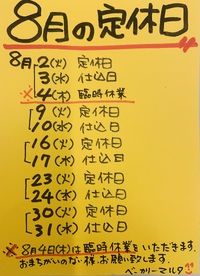 8月の定休日
8月2(火) 定休日
3(水) 仕込日
※4(木) 臨時休業
9(火) 定休日
10(水) 仕込日
16(火) 定休日
17(水) 仕込日
23(火) 定休日
24(水) 仕込日
30(火) 定休日
31(水) 仕込日
※8月4日(木)は臨時休業をいただきます。
おまちがいのない様、お願い致します。
ベーカリーマルタ